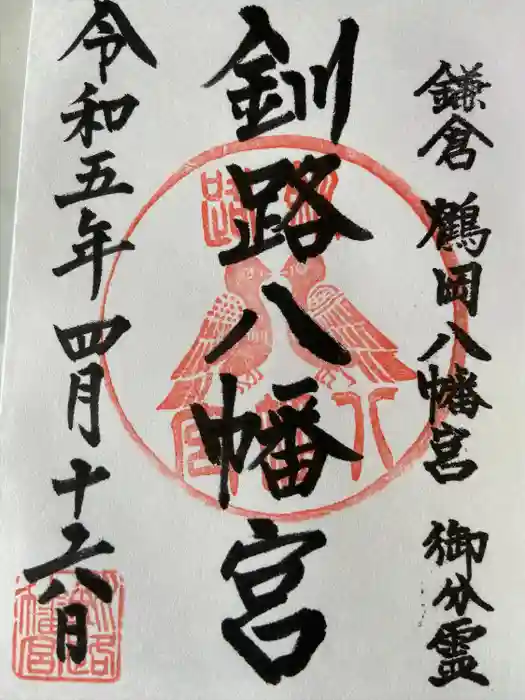 鎌倉 鶴岡八幡宮 御分霊
釧路八幡宮
令和五年四月十六日
釧路
八幡宮